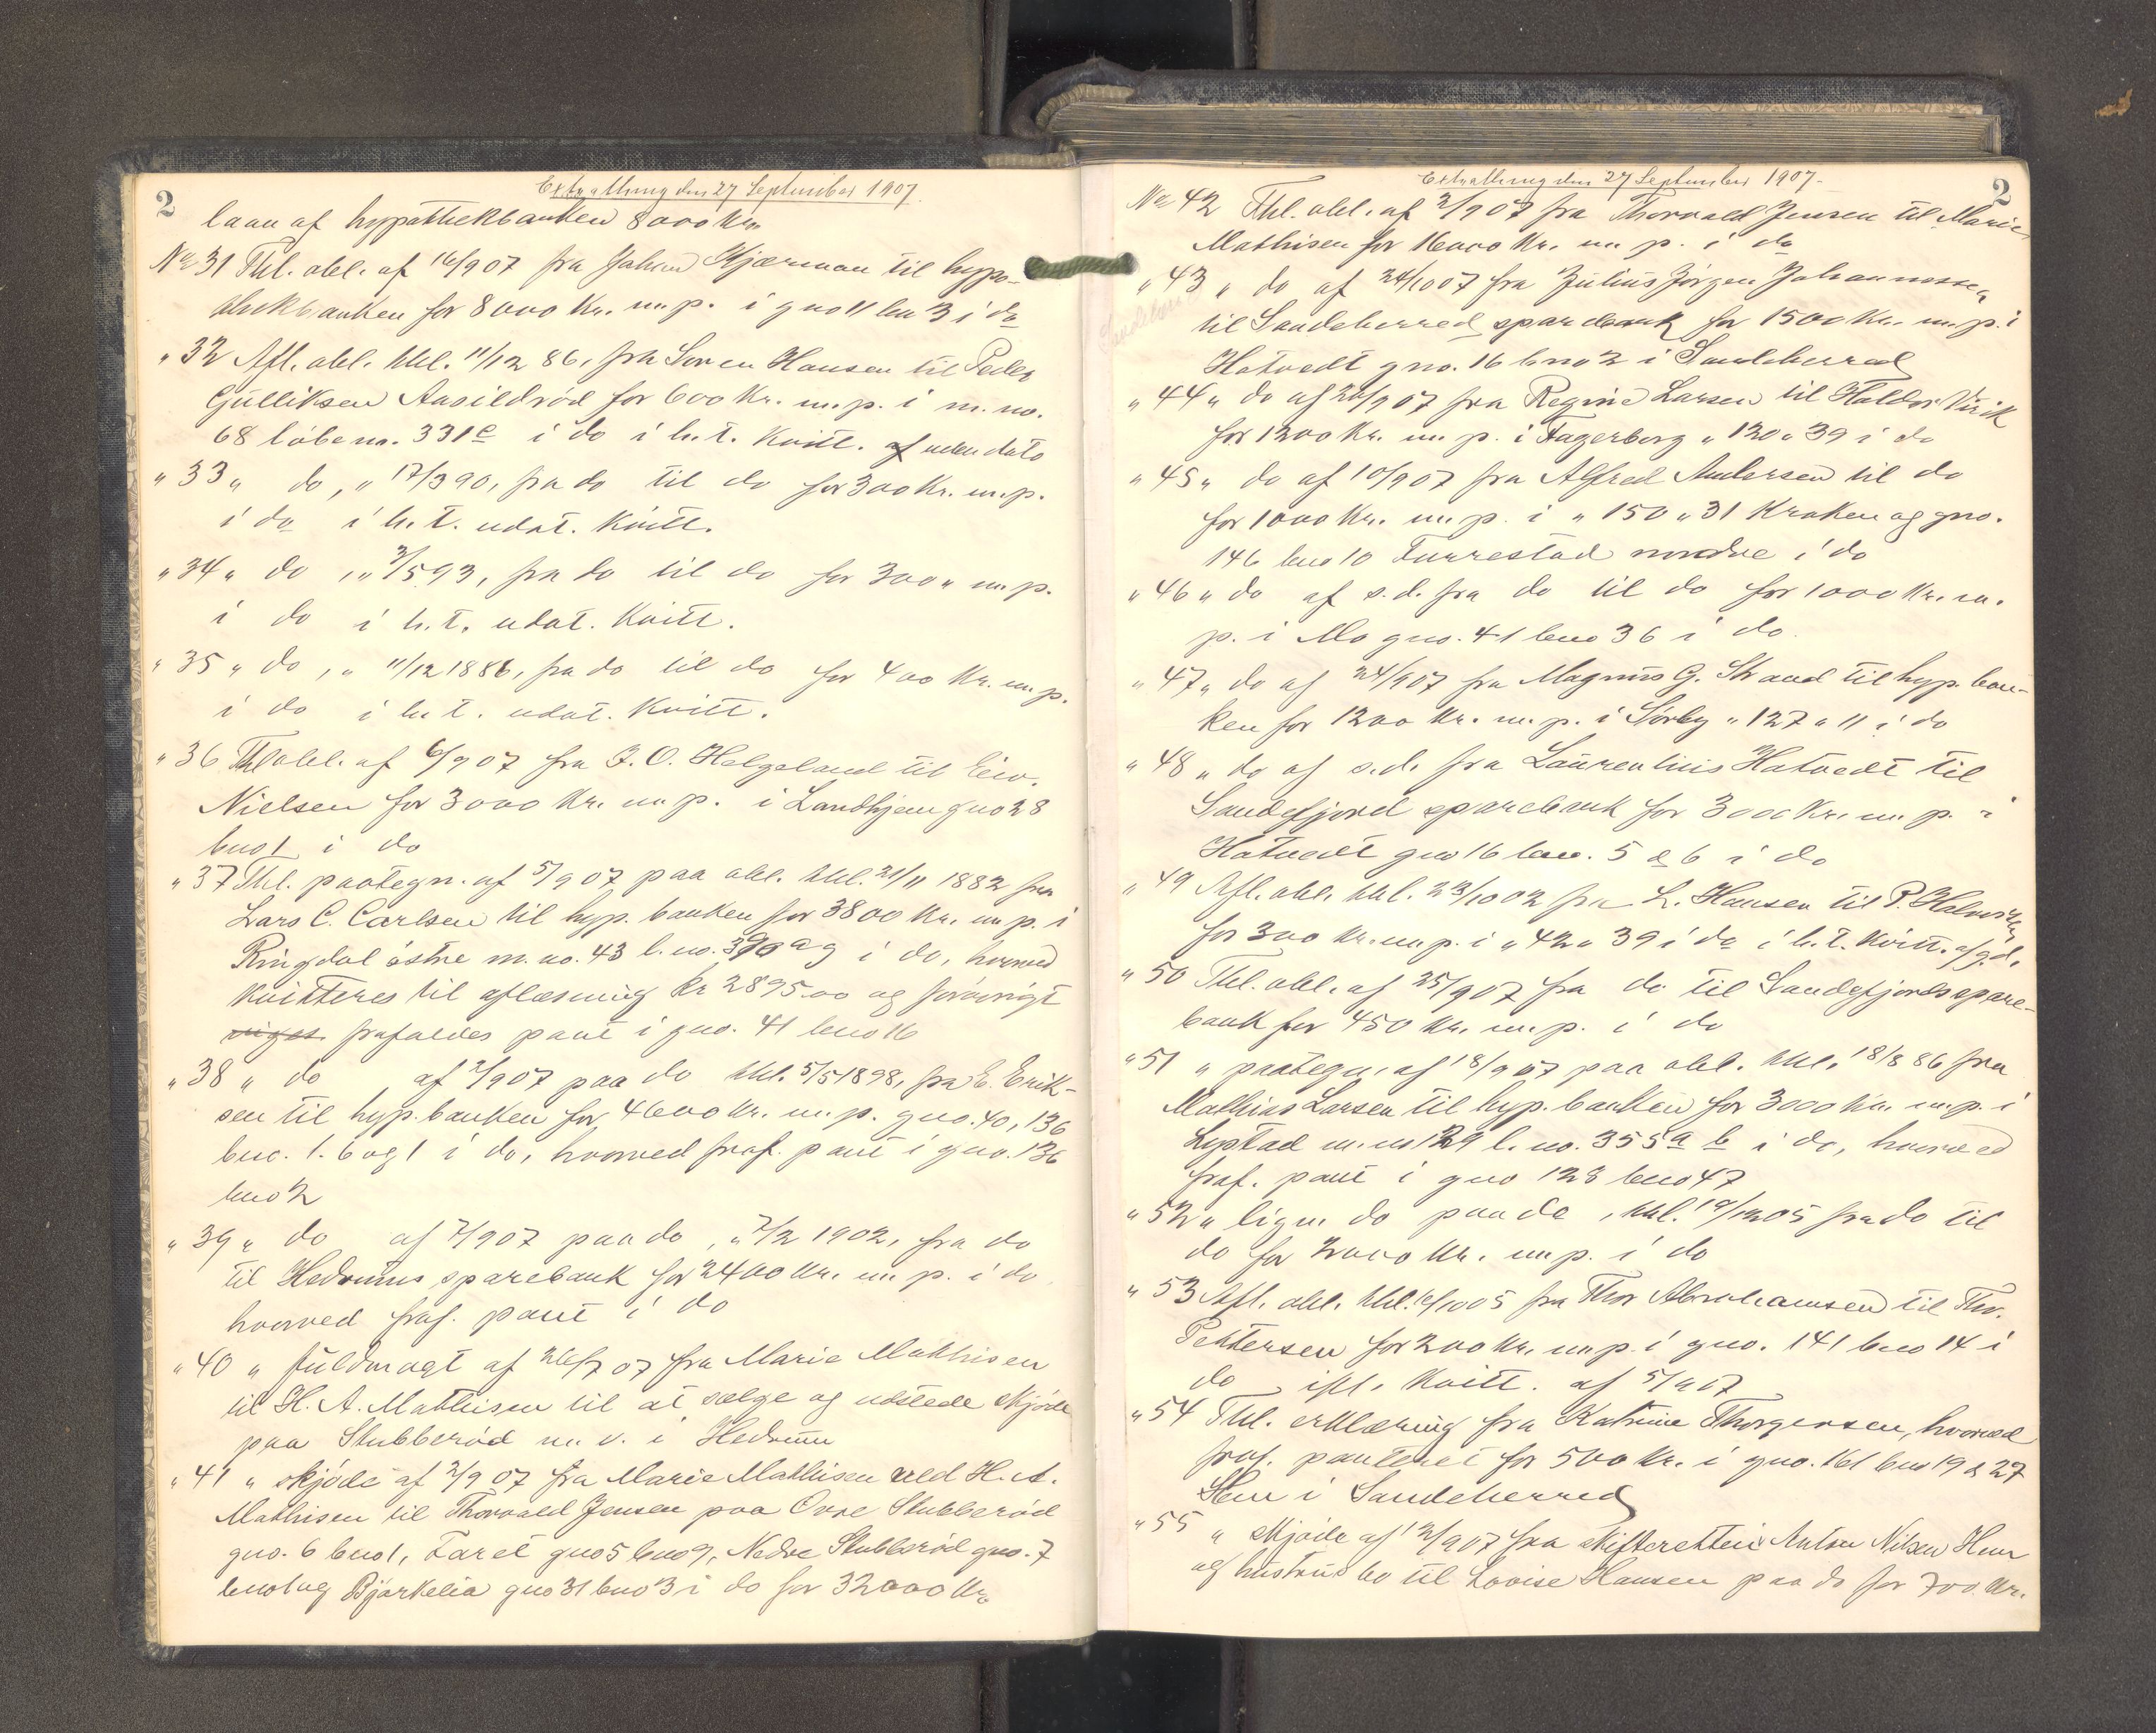 2
Extrathing den 27 September 1907.
laan af hypothekbanken 8000 Kr.
No 31 Thl. obl. af 16/9 07 fra Johan Kjærman til hypo-
thekbanken for 8000 Kr. m.p. i gno 11 bn 3 i do
" 32 Afl. obl. thl. 11/12 86, fra Soren Hansen til Peder
Gulliksen Aasildrød for 600 Kr. m.p. i m.no.
68 løbeno. 331e i do i h.t. Kvitt. af uden dato
" 33 " do, " 17/3 90, fra do til do for 300 Kr. m.p.
i do i h.t. udat. Kvitt.
" 34 " do , " 3/5 93, fra do til do for 300 " m.p.
i do i h.t. udat. Kvitt.
" 35 " do , " 11/12 1886, fra do til do for 400 Kr. m.p.
i do i h.t. udat. Kvitt.
" 36 Thl obl. af 6/9 07 fra J. O. Helgeland til Ein.
Nielsen for 3000 Kr. m.p. i Landhjem gno 28
bno 1 i do
" 37 Thl. paategn. af 5/9 07 paa obl. thl. 21/11 1882 fra
Lars C. Carlsen til hyp. banken for 3800 Kr. m.p. i
Ringdal østre m.no. 43 l.no. i do, hvorved
kvitteres til aflæsning kr 2895.00 og forøvrigt
viges frafaldes pant i gno. 41 bno 16
" 38 " do af 7/9 07 paa do thl. 5/5 1898, fra E. Erik-
sen til hyp. banken for 4600 Kr. m.p. gno. 40, 136
bno. 1. 6 og 1 i do, hvorved fraf. pant i gno. 136
bno 2
" 39 " do af 7/9 07 paa do , " 7/2 1902, fra do
til Hedrums sparebank for 2400 Kr. m.p. i do
hvorved fraf. pant i do
" 40 " fuldmagt af 26/7 07 fra Marie Mathisen
til H. A. Mathisen til at sælge og udstede skjøde
paa Stubberød m.v. i Hedrum
" 41 " skjøde af 2/9 07 fra Marie Mathisen ved H. A.
Mathisen til Thorvald Jensen paa Øvre Stubberød
gno. 6 bno 1, Faret gno 5 bno 9, Nedre Stubberød gno. 7
bno 1 og Bjørkelia gno 31 bno 3 i do for 32000 Kr.
2
Extrathing den 27 September 1907.
No 42 Thl. obl. af 2/9 07 fra Thorvald Jensen til Marie
Mathisen for 16000 Kr. m.p. i do
" 43 " do af 24/10 07 fra Julius Jørgen Johannessen
til Sandeherred sparebank for 1500 Kr. m.p. i
Hotvedt gno. 16 bno 2 i Sandeherred
" 44 " do af 26/9 07 fra Regine Larsen til Haldor Virik
for 1200 Kr. m.p. i Fagerborg " 120 " 39 i do
" 45 " do af 10/9 07 fra Alfred Andersen til do
for 1000 Kr. m.p. i " 150 " 31 Kraken og gno.
146 bno 10 Furrestad nordre i do
" 46 " do af s.d. fra do til do for 1000 Kr. m.
p. i Mo gno. 41 bno 36 i do.
" 47 " do af 24/9 07 fra Magnus G. Strand til hyp. ban-
ken for 1200 Kr. m.p. i Sørby " 127 " 11 i do
" 48 " do af s.d. fra Laurentius Hotvedt til
Sandefjord sparebank for 3000 Kr. m.p. i
Hotvedt gno 16 bno. 5 & 6 i do
" 49 Afl. obl. thl. 23/10 02 fra L. Hansen til P.
for 300 Kr. m.p. i " 42 " 39 i do i h.t. Kvitt. af g.d.
" 50 Thl. obl. af 25/9 07 fra do til Sandefjords spare-
bank for 450 Kr. m.p. i do
" 51 " paategn. af 18/9 07 paa obl. thl. 18/8 86 fra
Mathias Larsen til hyp. banken for 3000 Kr. m.p. i
Lystad m.no 129 l. no. 355a b i do, hvorved
fraf. pant i gno 128 bno 47
" 52 " lign do paa do , thl. 19/12 05 fra do til
do for 2000 Kr. m.p. i do
" 53 Afl. obl. thl. 6/10 05 fra Thor Abrahamsen til Thv.
Pettersen for 200 Kr. m.p. i gno. 141 bno 14 i
do ifl. Kvitt. af 5/9 07
" 54 Thl. erklæring fra Katrine Thorgersen, hvorved
fraf. panteret for 500 Kr. i gno. 161 bno 19 & 27
Hem i Sandeherred
" 55 " skjøde af 12/9 07 fra skifteretten i Anton Nilsen Hem
og hustrus bo til Lovise Hansen paa do for 700. Kr.